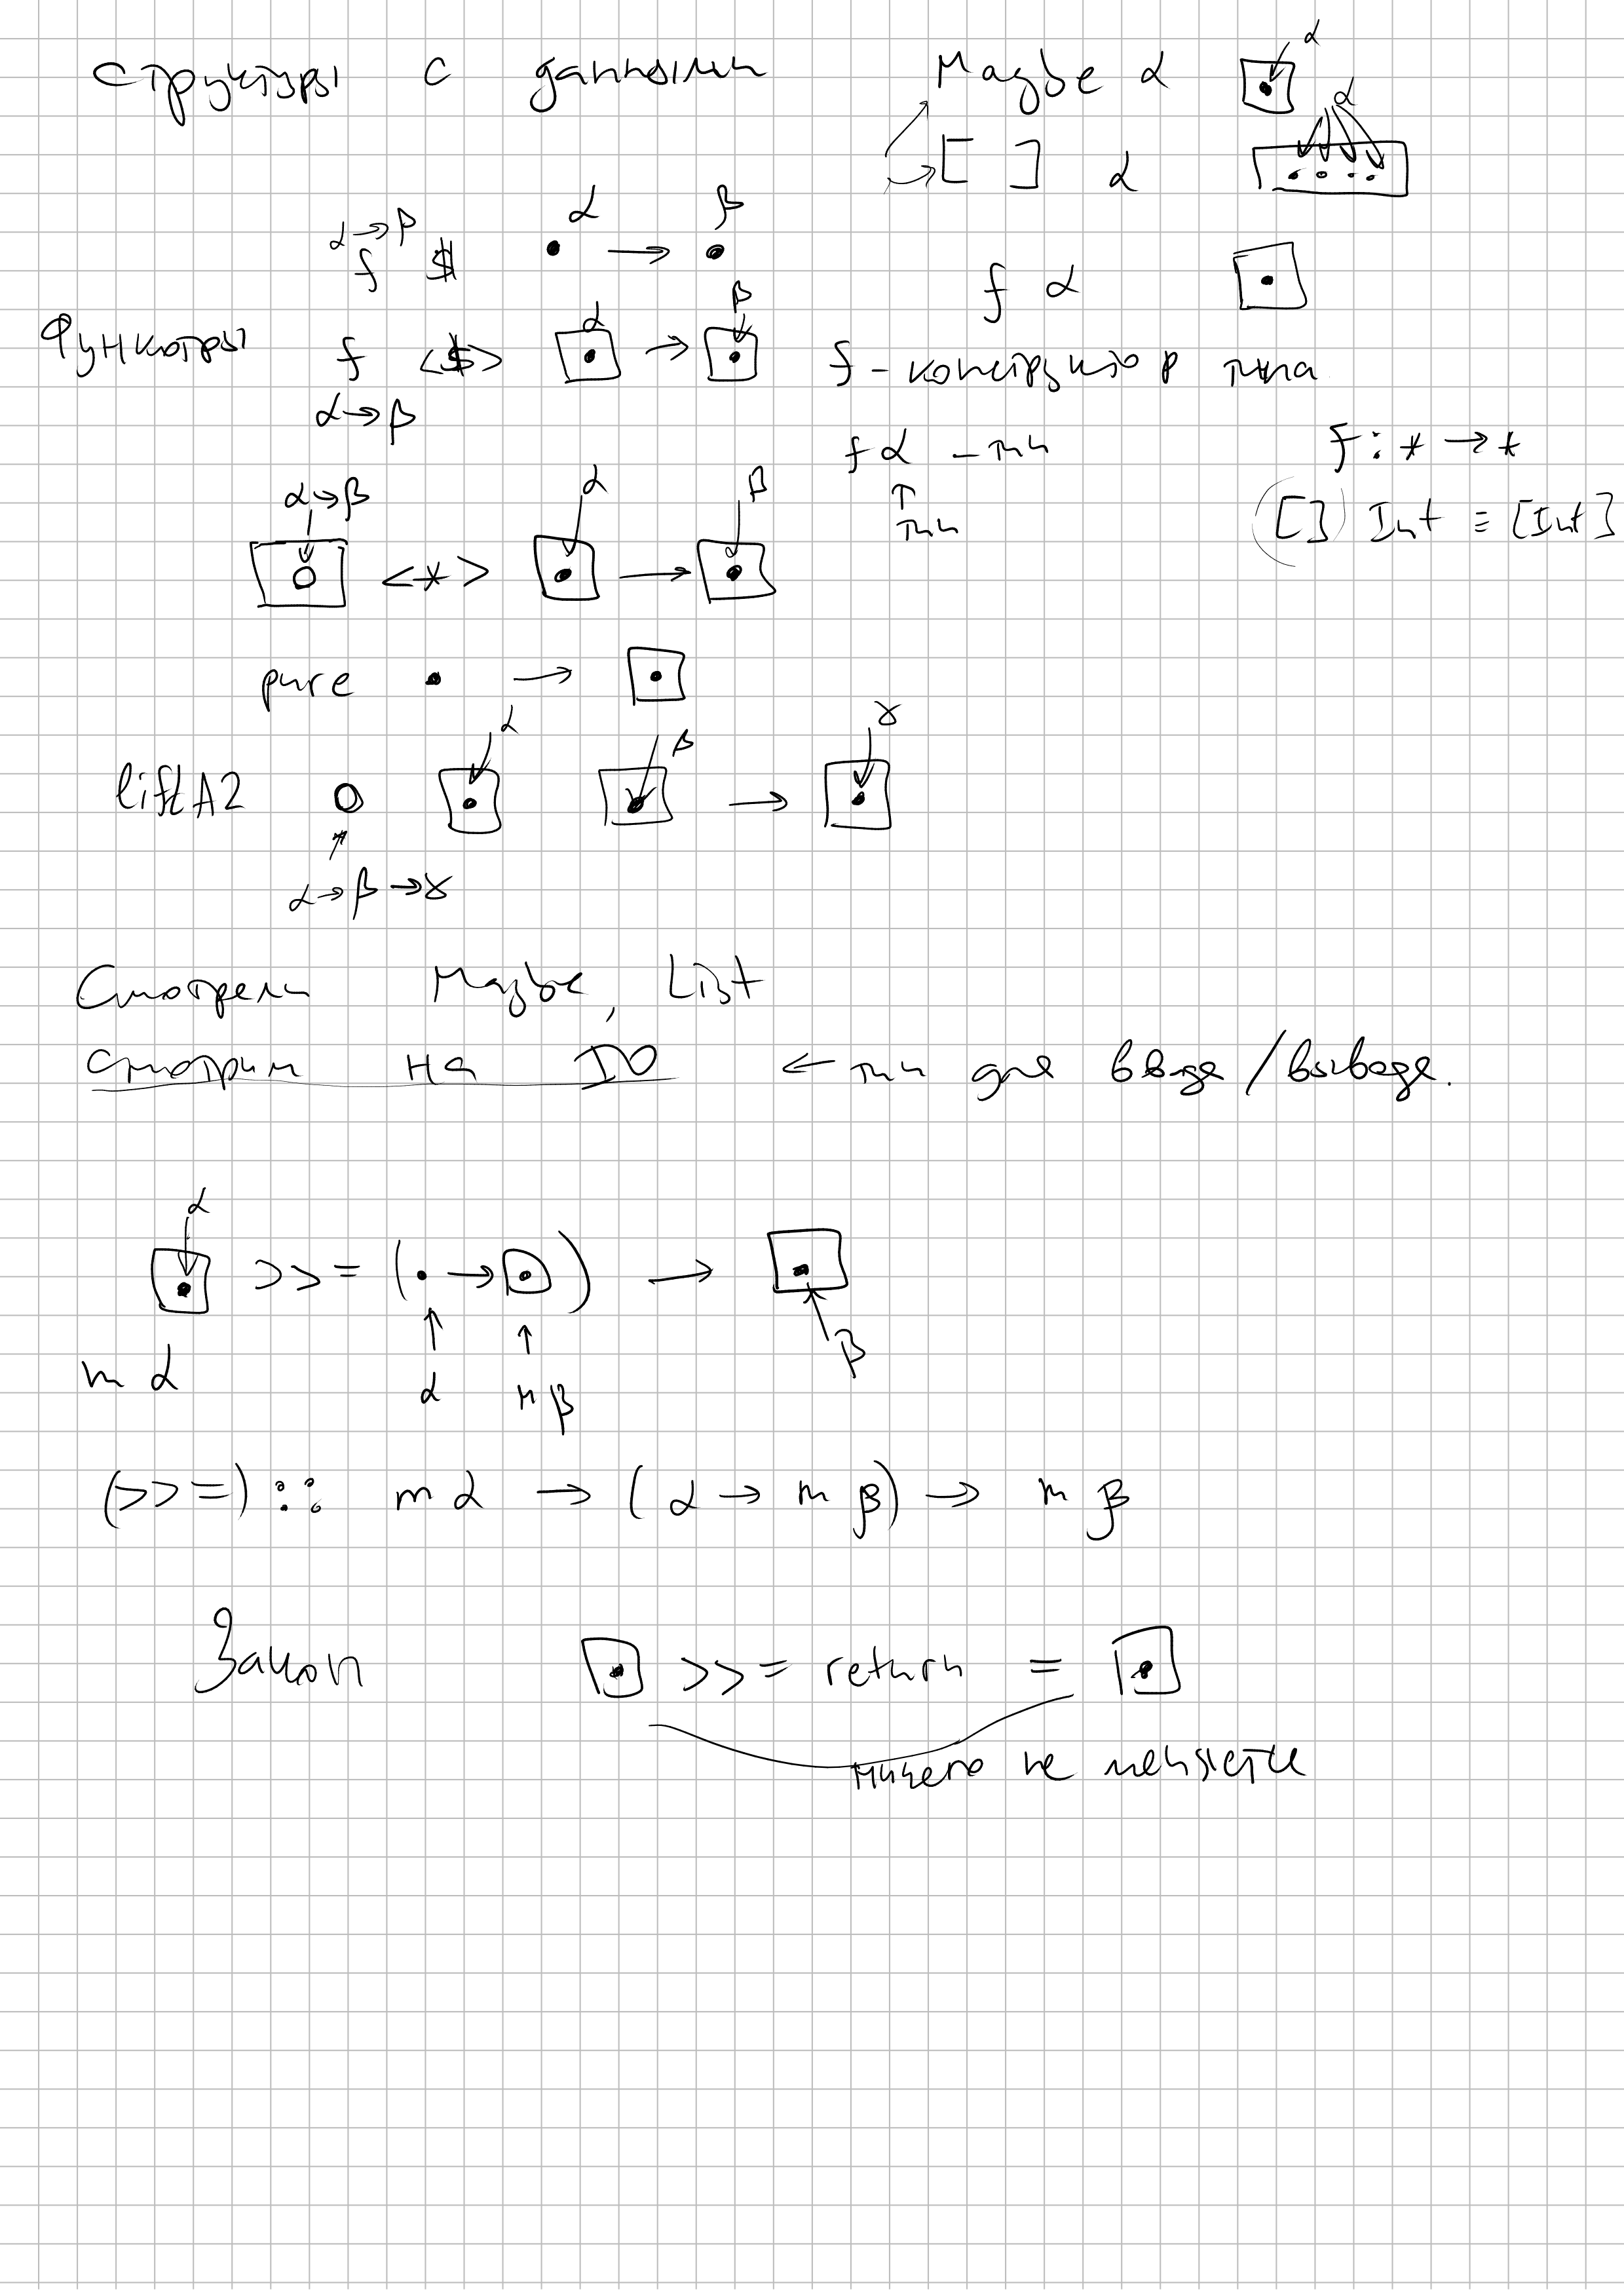 Структуры с данными Maybe α α
[ ] α α
α → β α → β
f $
f α
Функторы f <$> α → β f - конструктор типа
α → β
f α - тип f : * → *
↑
тип
([]) Int ≡ [Int]
α → β α β
<*> →
pure →
liftA2 α β → γ
α → β → γ
Смотрели Maybe, List
Смотрим на IO ← тип для ввода/вывода.
α
>>= ( . → ) →
m α α m β β
(>>=) :: m α → (α → m β) → m β
Закон >>= return =
ничего не меняете